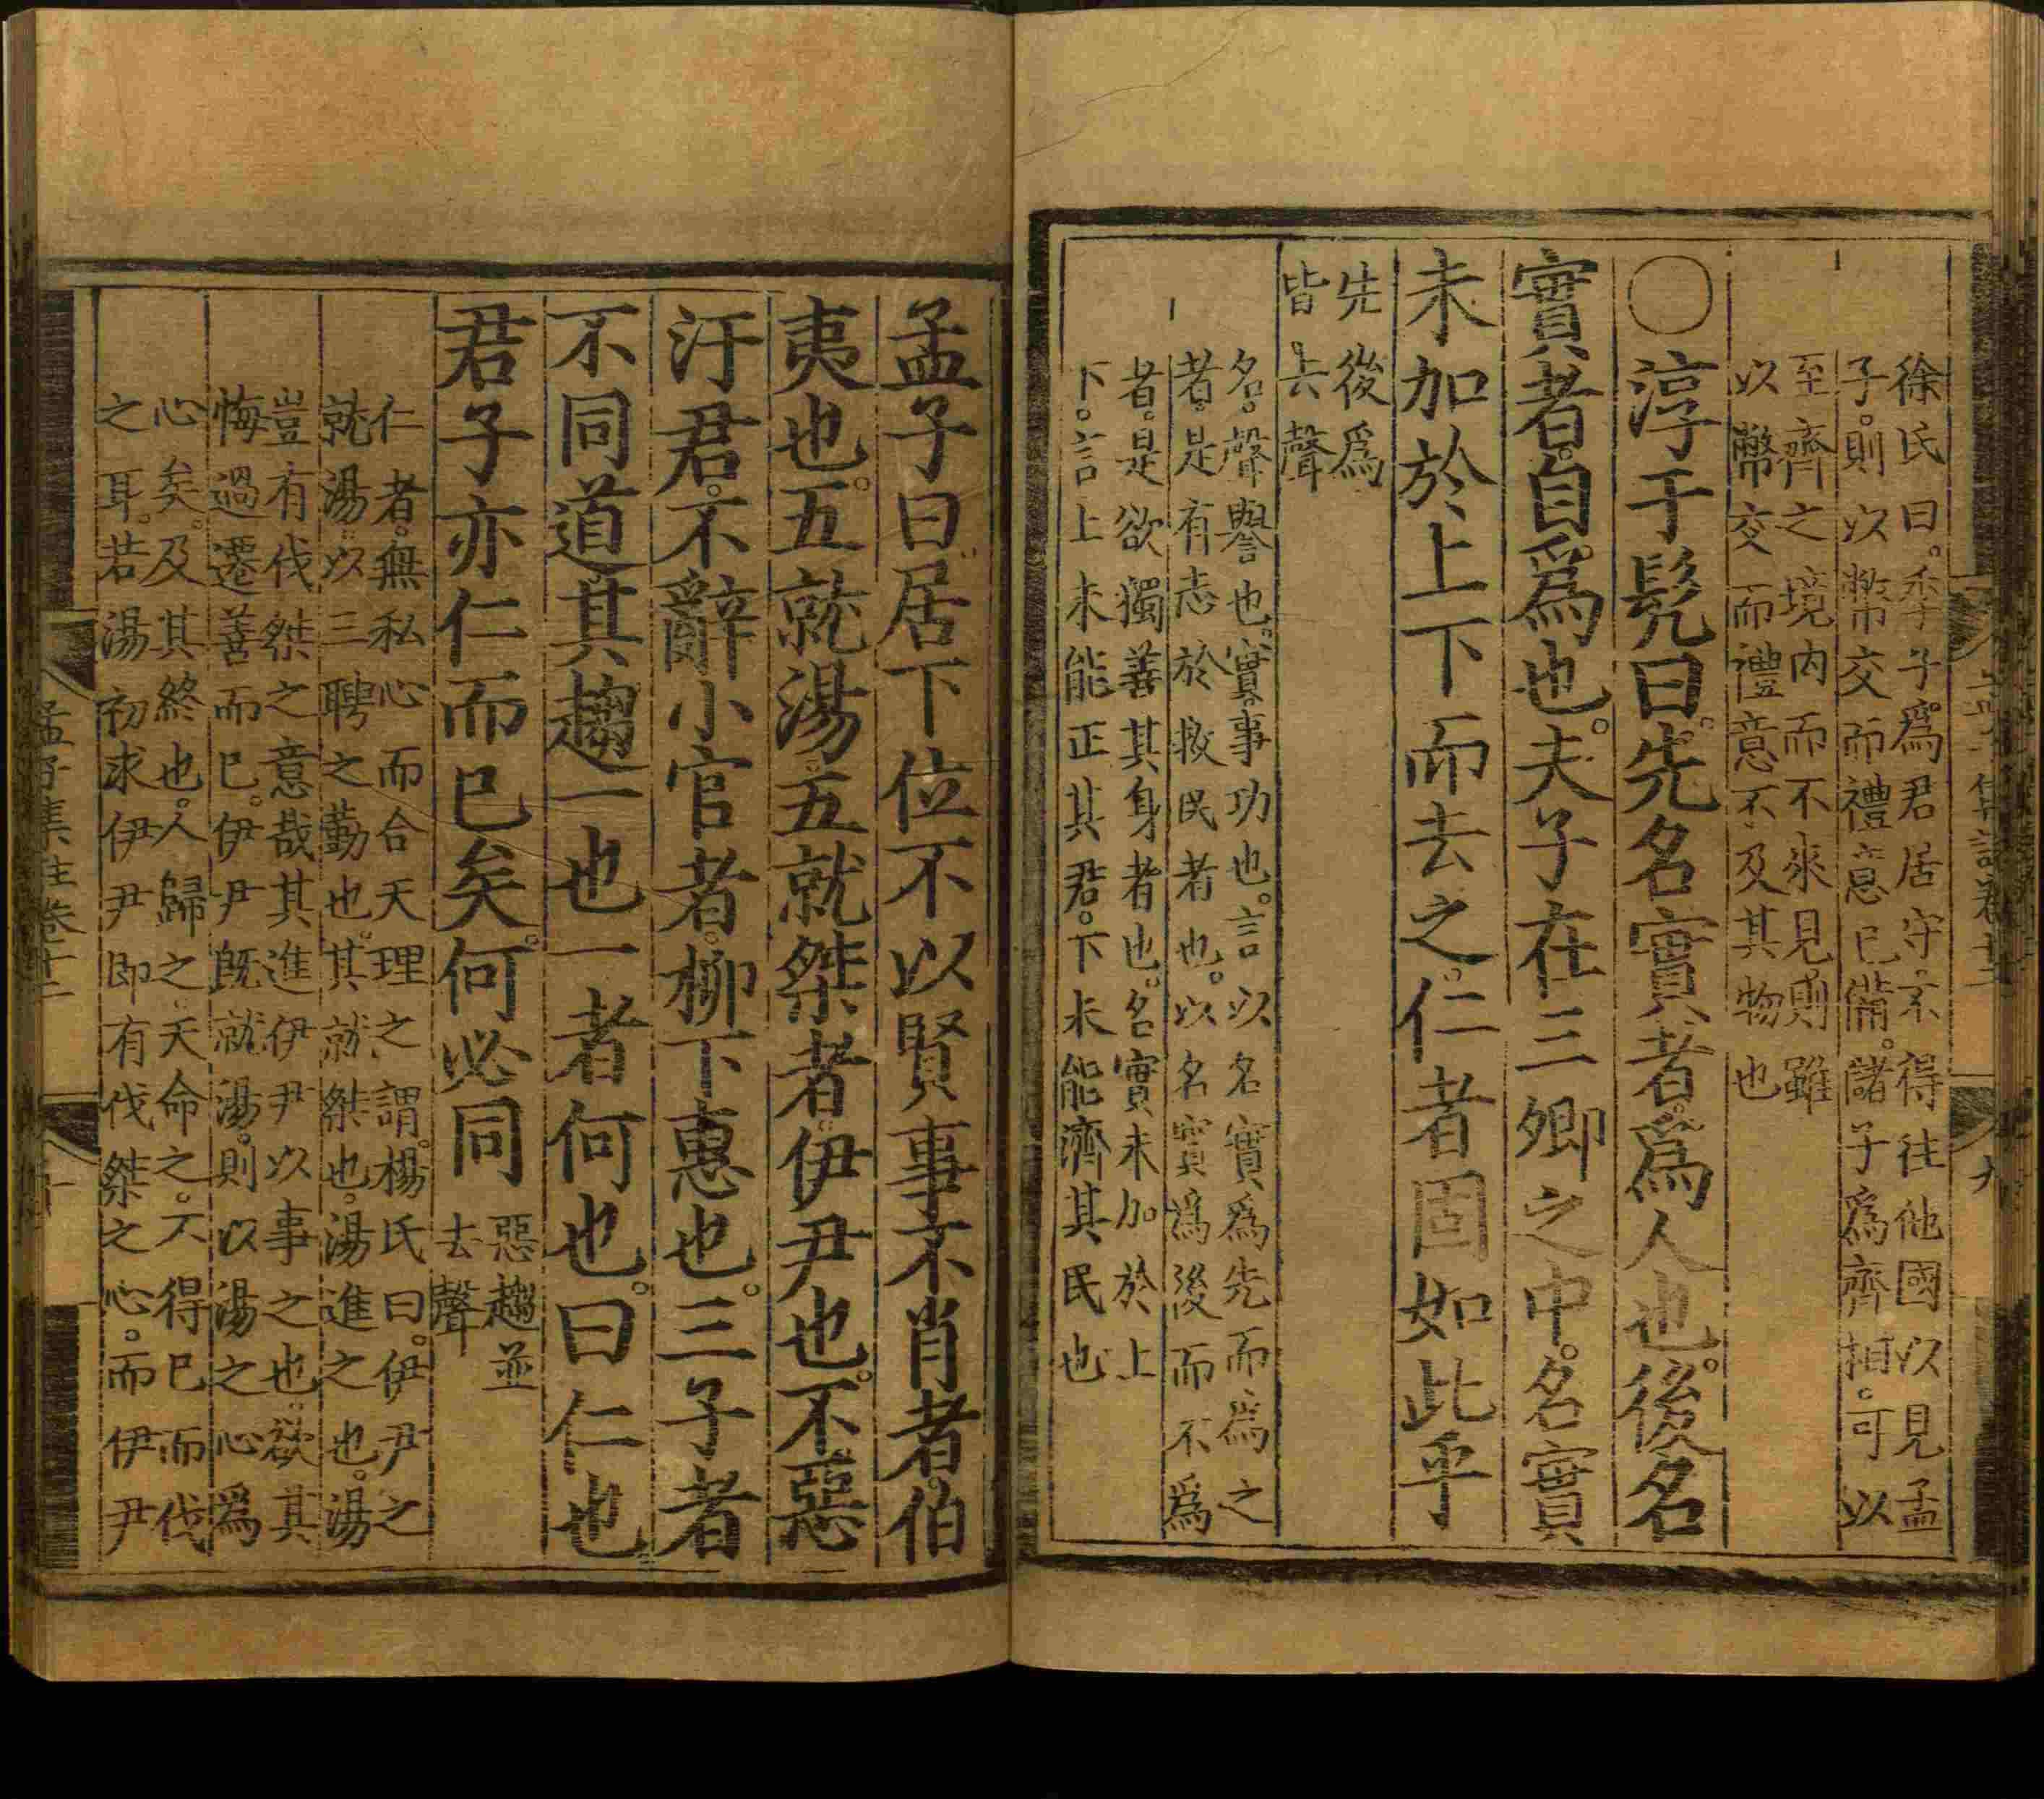 徐氏曰。季子爲君居守。不得往他國以見孟
子。則以幣交而禮意已備。儲子爲齊相。可以
至齊之境内而不來見。則雖
以幣交而禮意不及其物也
〇淳于髡曰。先名實者。爲人也。後名
實者。自爲也。夫子在三卿之中。名實
未加於上下而去之。仁者固如此乎
先後爲
皆去聲
名。聲譽也。實。事功也。言以名實爲先而爲之
者。是有志於救民者也。以名實爲後而不爲
者。是欲獨善其身者也。名實未加於上
下。言上未能正其君。下未能濟其民也
孟子曰。居下位不以賢事不肖者。伯
夷也。五就湯。五就桀者。伊尹也。不惡
汙君。不辭小官者。柳下惠也。三子者
不同道。其趨一也。一者何也。曰仁也
君子亦仁而已矣。何必同
惡趨並
去聲
仁者。無私心而合天理之謂。楊氏曰。伊尹之
就湯。以三聘之勤也。其就桀也。湯進之也。湯
豈有伐桀之意哉。其進伊尹以事之也。欲其
悔過遷善而已。伊尹既就湯。則以湯之心爲
心矣。及其終也。人歸之。天命之。不得已而伐
之耳。若湯初求伊尹。即有伐桀之心。而伊尹
孟子集註卷十二
九
孟子集註卷十二